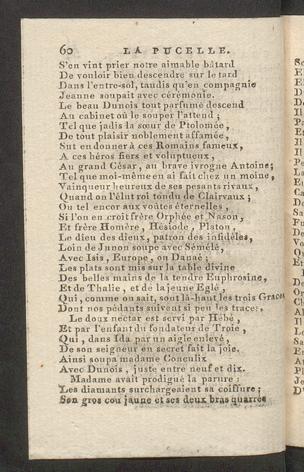 60 LA PUCELLE.
S'en vint prier notre aimable bâtard
De vouloir bien descendre sur le tard
Dans l'entre-sol, tandis qu'en compagnie
Jeanne soupait avec cérémonie.
Le beau Dunois tout parfumé descend
Au cabinet où le souper l'attend ;
Tel que jadis la sœur de Ptolomée,
De tout plaisir noblement affamée,
Sut en donner à ces Romains fameux,
A ces héros fiers et voluptueux,
Au grand César, au brave ivrogne Antoine;
Tel que moi-même en ai fait chez un moine,
Vainqueur heureux de ses pesants rivaux,
Quand on l'élut roi tondu de Clairvaux ;
Ou tel encor aux voûtes éternelles,
Si l'on en croit frère Orphée et Nason,
Et frère Homère, Hésiode, Platon,
Le dieu des dieux, patron des infidèles,
Loin de Junon soupe avec Sémélé,
Avec Isis, Europe, ou Danaé ;
Les plats sont mis sur la table divine
Des belles mains de la tendre Euphrosine,
Et de Thalie, et de la jeune Eglé,
Qui, comme on sait, sont là-haut les trois Graces
Dont nos pédants suivent si peu les traces;
Le doux nectar est servi par Hébé,
Et par l'enfant du fondateur de Troie,
Qui, dans Ida par un aigle enlevé,
De son seigneur en secret fait la joie.
Ainsi soupa madame Conculix
Avec Dunois, juste entre neuf et dix.
Madame avait prodigué la parure :
Les diamants surchargeaient sa coiffure ;
Son gros cou jaune et ses deux bras quarrés